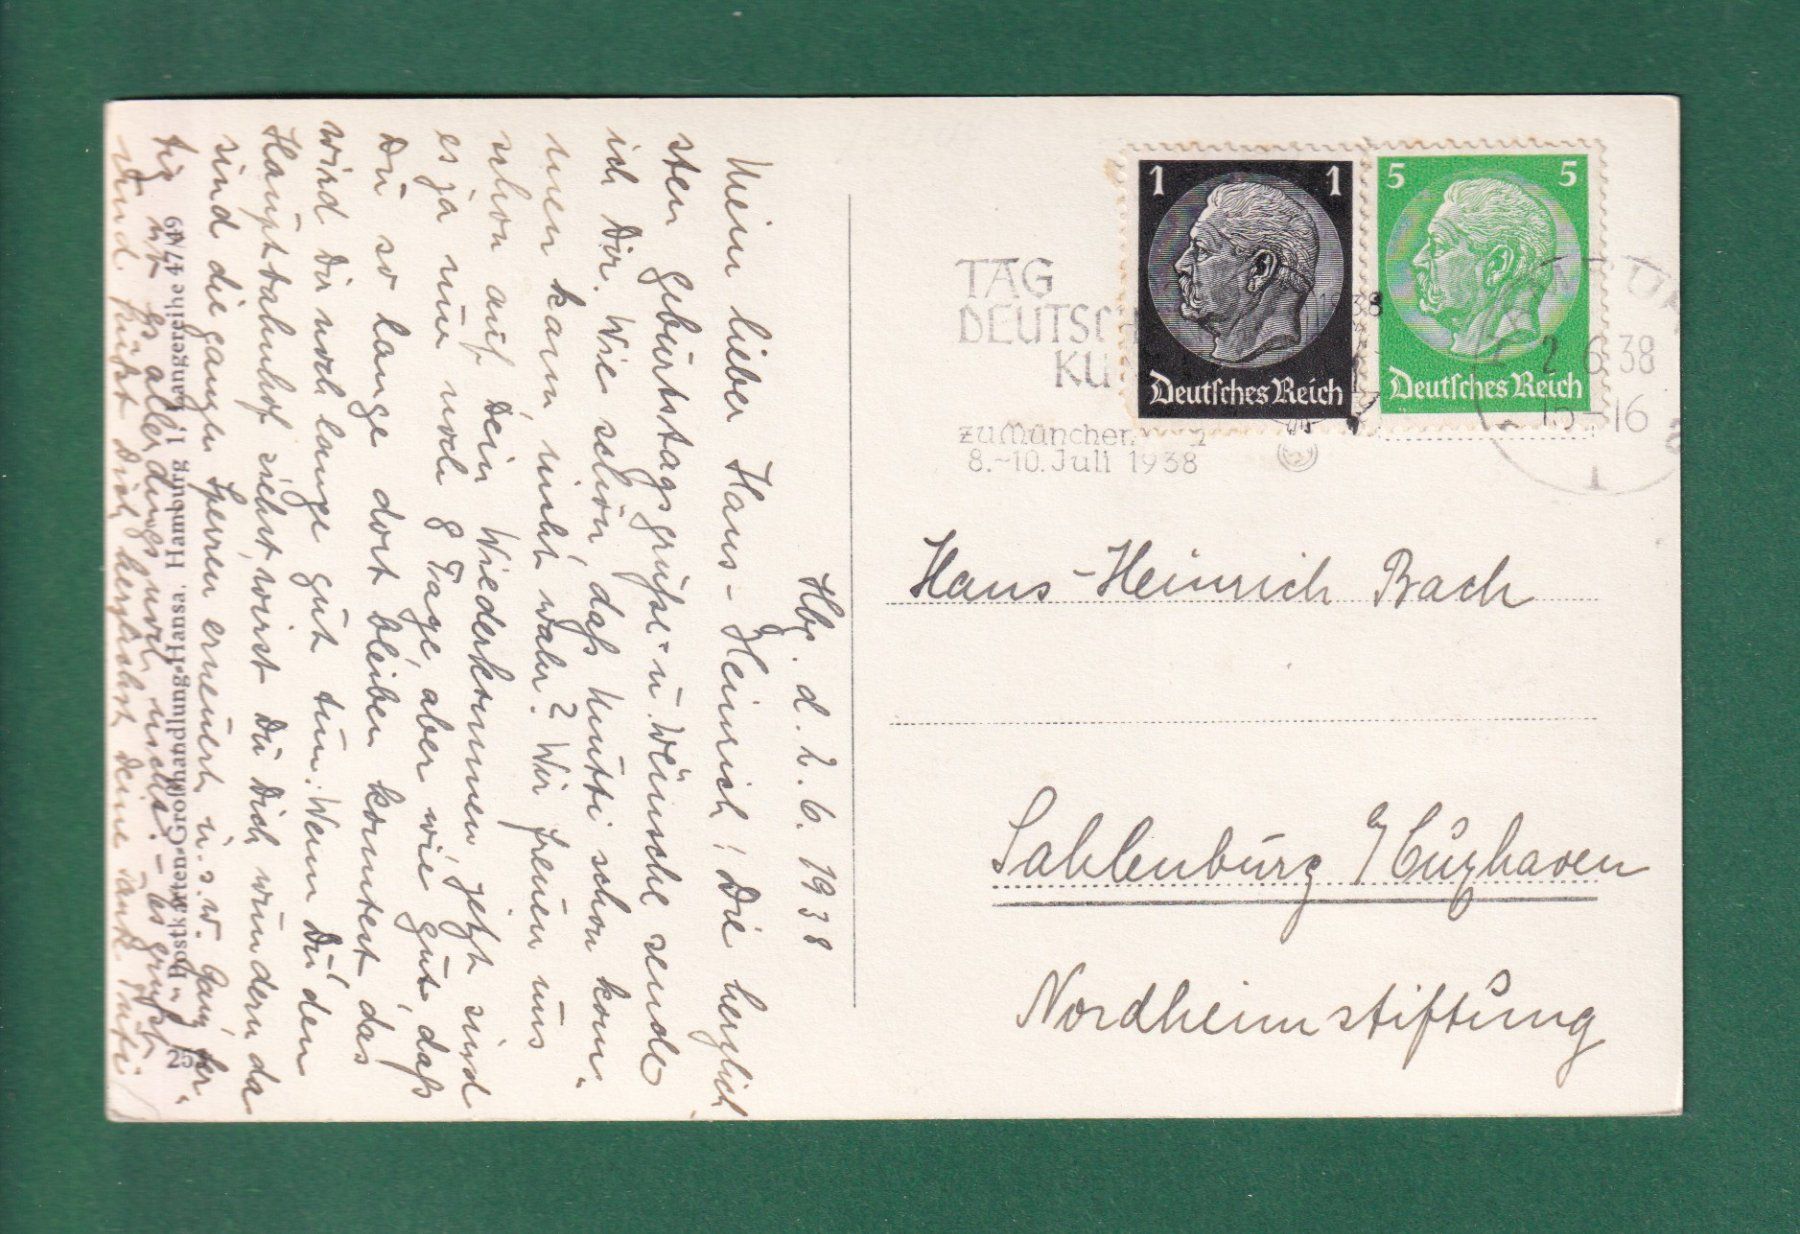 Hbg. d. 2. 6. 1938
Mein lieber Hans-Heinrich! Die herzlich-
sten Geburtstagsgrüsse u. Wünsche sende
ich Dir. Wie schön, daß Mutti schon kom-
men kann nicht wahr? Wir freuen uns
schon auf Dein Wiederkommen jetzt sind
es ja nur noch 8 Tage aber wie gut, daß
Du so lange dort bleiben konntest, das
wird Dir noch lange gut tun. Wenn Du den
Hauptbahnhof siehst, wirst Du Dich wundern da
sind die ganzen Sperren erneuert u.s.w. Ganz fer-
tig ist es allerdings noch nicht. – Es grüßt
und küßt Dich herzlichst Deine Tante
Postkarten-Großhandlung Hansa, Hamburg 1 Langereihe 47/49
25
TAG
DEUTSC
KU
zu München
8.–10. Juli 1938
1 1
Deutsches Reich
5 5
Deutsches Reich
2.6.38
15–16
1
Hans-Heinrich Bach
Sahlenburg b/Cuxhaven
Nordheimstiftung